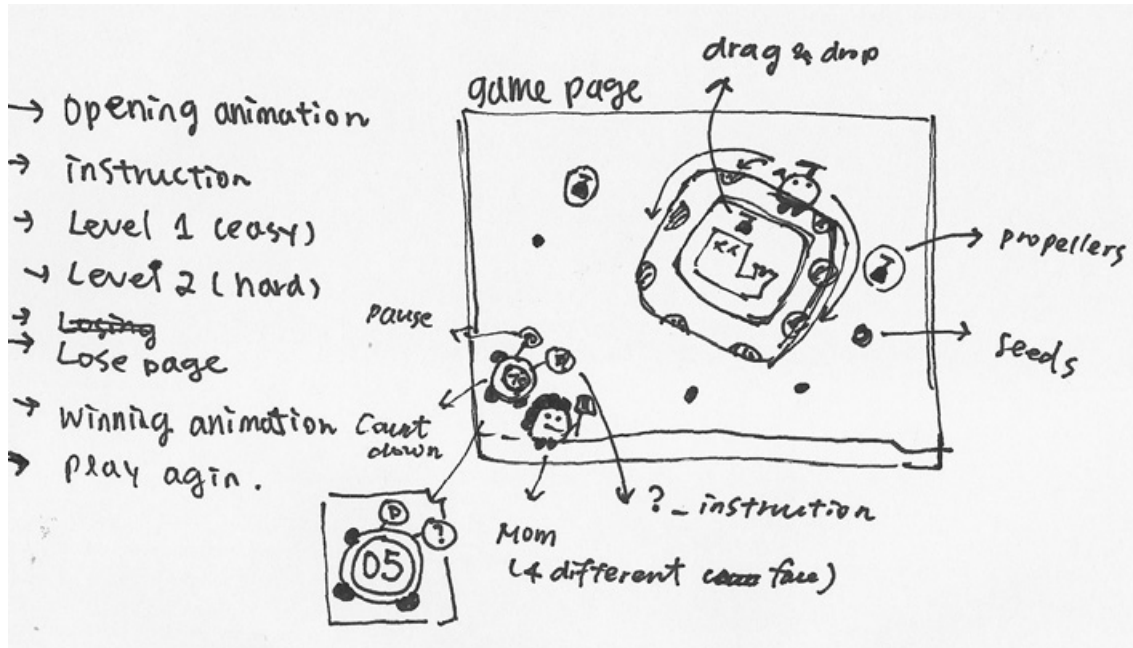 → Opening animation
→ instruction
→ Level 1 (easy)
→ Level 2 (hard)
→ Losing
→ Lose page
→ Winning animation
→ play agin.
game page
drag & drop
propellers
seeds
pause
Count
down
P
?
05
Mom
(4 different face)
?_instruction